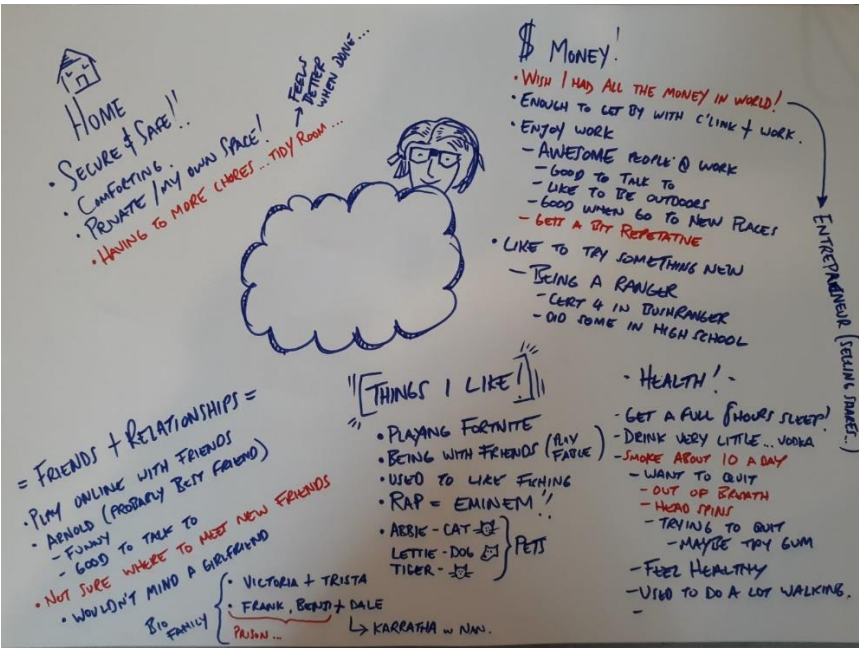 HOME
• SECURE & SAFE!!
• COMFORTING.
• PRIVATE / MY OWN SPACE!
• HAVING TO MORE CHORES... TIDY ROOM...
→ FEELS
BETTER
WHEN DONE...
$ MONEY!
• WISH I HAD ALL THE MONEY IN WORLD!
• ENOUGH TO GET BY WITH C'LINK + WORK.
• ENJOY WORK
- AWESOME PEOPLE @ WORK
- GOOD TO TALK TO
- LIKE TO BE OUTDOORS
- GOOD WHEN GO TO NEW PLACES
- GETS A BIT REPETATIVE
• LIKE TO TRY SOMETHING NEW
- BEING A RANGER
- CERT 4 IN BUSHRANGER
- DID SOME IN HIGH SCHOOL
ENTREPRENEUR (SELLING SHARES...)
= FRIENDS + RELATIONSHIPS =
• PLAY ONLINE WITH FRIENDS
• ARNOLD (PROBABLY BEST FRIEND)
- FUNNY
- GOOD TO TALK TO
• NOT SURE WHERE TO MEET NEW FRIENDS
• WOULDN'T MIND A GIRLFRIEND
BIO
FAMILY
• VICTORIA + TRISTA
• FRANK, BENJI + DALE
PRISON...
↳ KARRATHA w NAN.
[THINGS I LIKE!]
• PLAYANG FORTNITE
• BEING WITH FRIENDS (PLAY
FABLE)
• USED TO LIKE FISHING
• RAP = EMINEM!!
• ABBIE - CAT
LETTIE - DOG
TIGER -
PETS
- HEALTH! -
- GET A FULL 8 HOURS SLEEP!
- DRINK VERY LITTLE... VODKA
- SMOKE ABOUT 10 A DAY
- WANT TO QUIT
- OUT OF BREATH
- HEAD SPINS
- TRYING TO QUIT
- MAYBE TRY GUM
- FEEL HEALTHY
- USED TO DO A LOT WALKING.
-